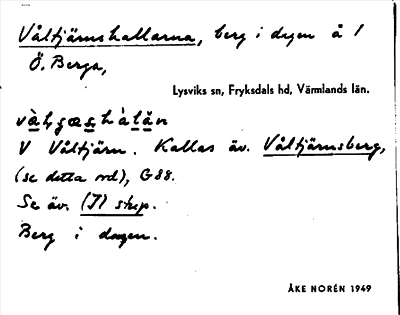 Våltjärnshallarna, berg i dagen å 1
Ö. Berga,
Lysviks sn, Fryksdals hd, Värmlands län.
V Våltjärn. Kallas äv. Våltjärnsberg,
(se detta ord), G 88.
Se äv. (J)
Berg i dagen.
ÅKE NORÉN 1949